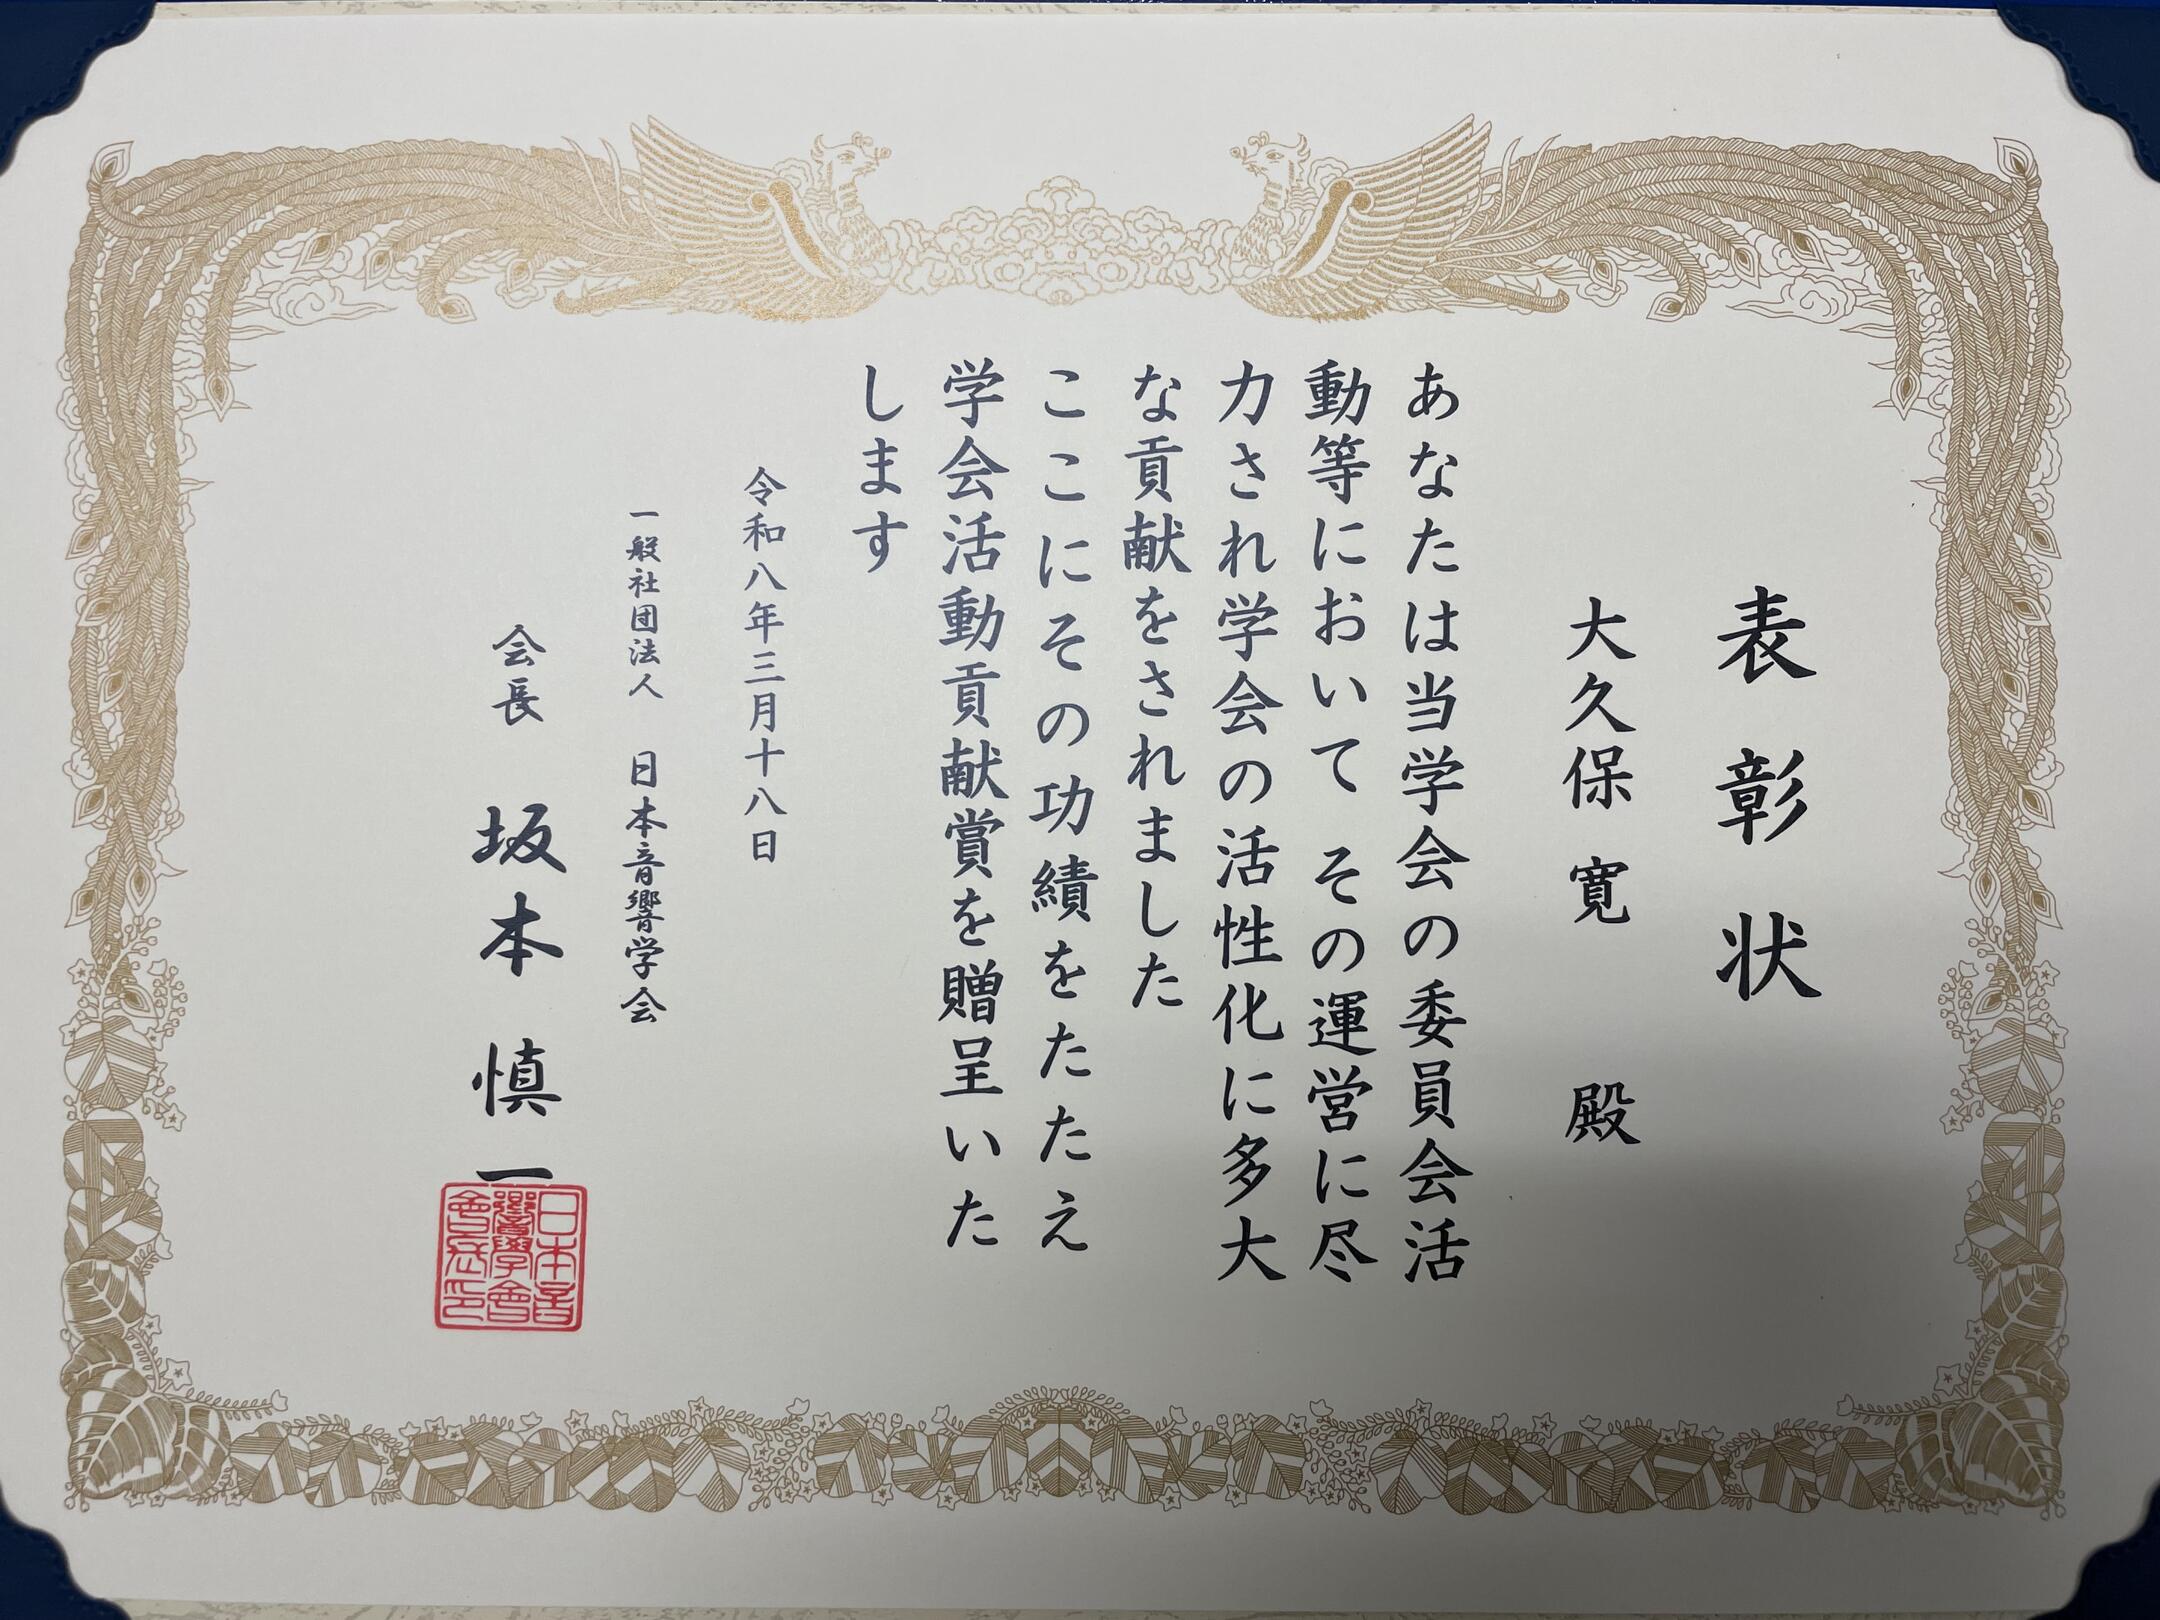 表彰状
大久保 寛 殿
あなたは当学会の委員会活
動等において その運営に尽
力され学会の活性化に多大
な貢献をされました
ここにその功績をたたえ
学会活動貢献賞を贈呈いた
します
令和八年三月十八日
一般社団法人 日本音響学会
会長 坂本慎一
日本音
響學會
會長印